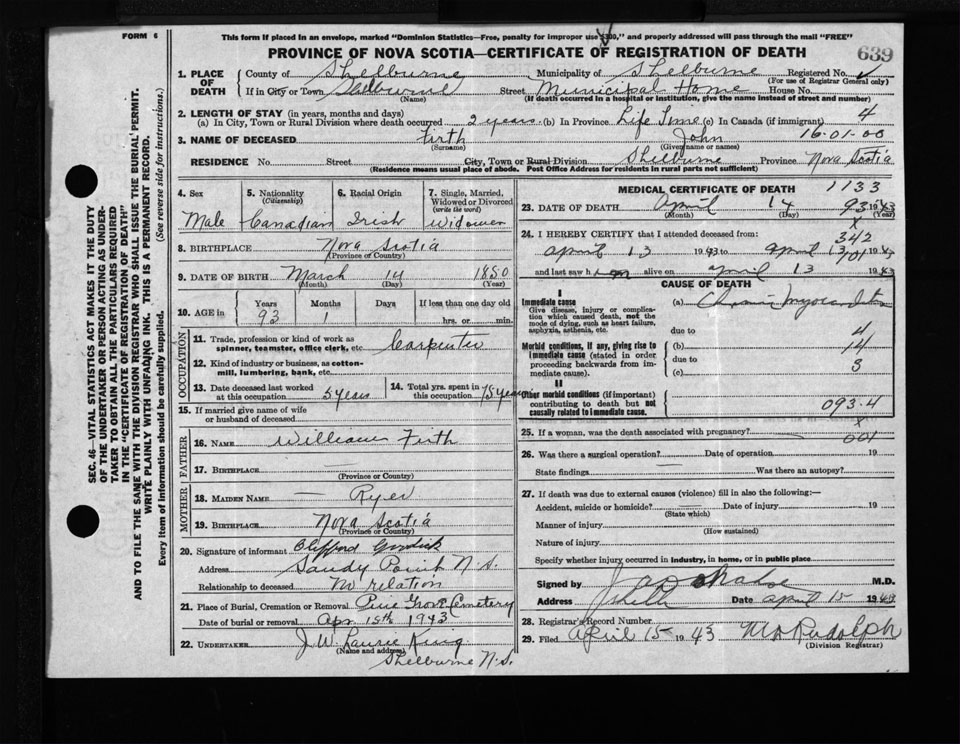 FORM 6
This form if placed in an envelope, marked "Dominion Statistics—Free, penalty for improper use $300," and properly addressed will pass through the mail "FREE"
PROVINCE OF NOVA SCOTIA—CERTIFICATE OF REGISTRATION OF DEATH
639
1. PLACE OF DEATH
County of Shelburne Municipality of Shelburne Registered No.
(For use of Registrar General only)
If in City or Town Shelburne Street Municipal Home House No.
(Name) (If death occurred in a hospital or institution, give the name instead of street and number)
2. LENGTH OF STAY (in years, months and days)
(a) In City, Town or Rural Division where death occurred 2 years. (b) In Province Life Time (c) In Canada (if immigrant) 4
16-01-00
3. NAME OF DECEASED Firth John
(Surname) (Given name or names)
RESIDENCE No. Street City, Town or Rural Division Shelburne Province Nova Scotia
(Residence means usual place of abode. Post Office Address for residents in rural parts not sufficient)
4. Sex
Male
5. Nationality
(Citizenship)
Canadian
6. Racial Origin
Irish
7. Single, Married, Widowed or Divorced
(write the word)
Widower
8. BIRTHPLACE Nova Scotia
(Province or Country)
9. DATE OF BIRTH March 14 1850
(Month) (Day) (Year)
10. AGE in
Years 93
Months 1
Days
If less than one day old
hrs. or min.
OCCUPATION
11. Trade, profession or kind of work as spinner, teamster, office clerk, etc. Carpenter
12. Kind of industry or business, as cotton-mill, lumbering, bank, etc.
13. Date deceased last worked at this occupation 5 years
14. Total yrs. spent in this occupation 75 years
15. If married give name of wife or husband of deceased
FATHER
16. NAME William Firth
17. BIRTHPLACE —
(Province or Country)
MOTHER
18. MAIDEN NAME — Ryer
19. BIRTHPLACE Nova Scotia
(Province or Country)
20. Signature of informant Clifford
Address Sandy Point N.S.
Relationship to deceased No relation
21. Place of Burial, Cremation or Removal Pine Grove Cemetery
Date of burial or removal Apr 15th 1943
22. UNDERTAKER J. W. Laurie King
(Name and address)
Shelburne N.S.
MEDICAL CERTIFICATE OF DEATH
1133
23. DATE OF DEATH April 14 1943
(Month) (Day) (Year)
93
x
24. I HEREBY CERTIFY that I attended deceased from:
342
April 13 1943 to April 13 1943
01
and last saw him alive on April 13 1943
CAUSE OF DEATH
I
Immediate cause
Give disease, injury or complication which caused death, not the mode of dying, such as heart failure, asphyxia, asthenia, etc.
(a) Chronic Myocarditis
due to 4
Morbid conditions, if any, giving rise to immediate cause (stated in order proceeding backwards from immediate cause).
(b) 14
due to 3
(c)
II
Other morbid conditions (if important) contributing to death but not causally related to immediate cause.
093.4
x
25. If a woman, was the death associated with pregnancy?
001
26. Was there a surgical operation? Date of operation 19
State findings — Was there an autopsy?
27. If death was due to external causes (violence) fill in also the following:—
Accident, suicide or homicide? Date of injury 19
(State which)
Manner of injury
(How sustained)
Nature of injury
Specify whether injury occurred in industry, in home, or in public place
Signed by M.D.
Address Date April 15 1943
28. Registrar's Record Number
29. Filed April 15 1943 Rudolph
(Division Registrar)
SEC. 46—VITAL STATISTICS ACT MAKES IT THE DUTY
OF THE UNDERTAKER OR PERSON ACTING AS UNDER-
TAKER TO OBTAIN ALL THE PARTICULARS REQUIRED
IN THE "CERTIFICATE OF REGISTRATION OF DEATH"
AND TO FILE THE SAME WITH THE DIVISION REGISTRAR WHO SHALL ISSUE THE BURIAL PERMIT.
WRITE PLAINLY WITH UNFADING INK. THIS IS A PERMANENT RECORD.
Every item of information should be carefully supplied. (See reverse side for instructions.)